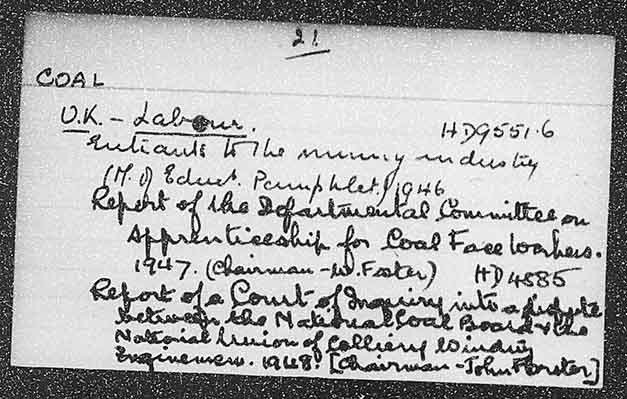 21.
COAL
U.K. - Labour.
HD9551.6
Entrants to the mining industry
(M. of Educt. Pamphlet) 1946
Report of the Departmental Committee on
Apprenticeship for Coal Face Workers.
1947. (Chairman - W. Foster) HD4885
Report of a Court of Inquiry into a dispute
between the National Coal Board & the
National Union of Colliery Winding
Enginemen. 1948. [Chairman - John Forster]